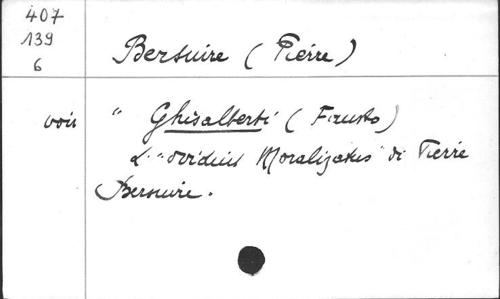 407
139
6
Bersuire (Pierre)
voir " Ghisalberti (Fausto)
L' "Ovidius Moralizatus" di Pierre
Bersuire.